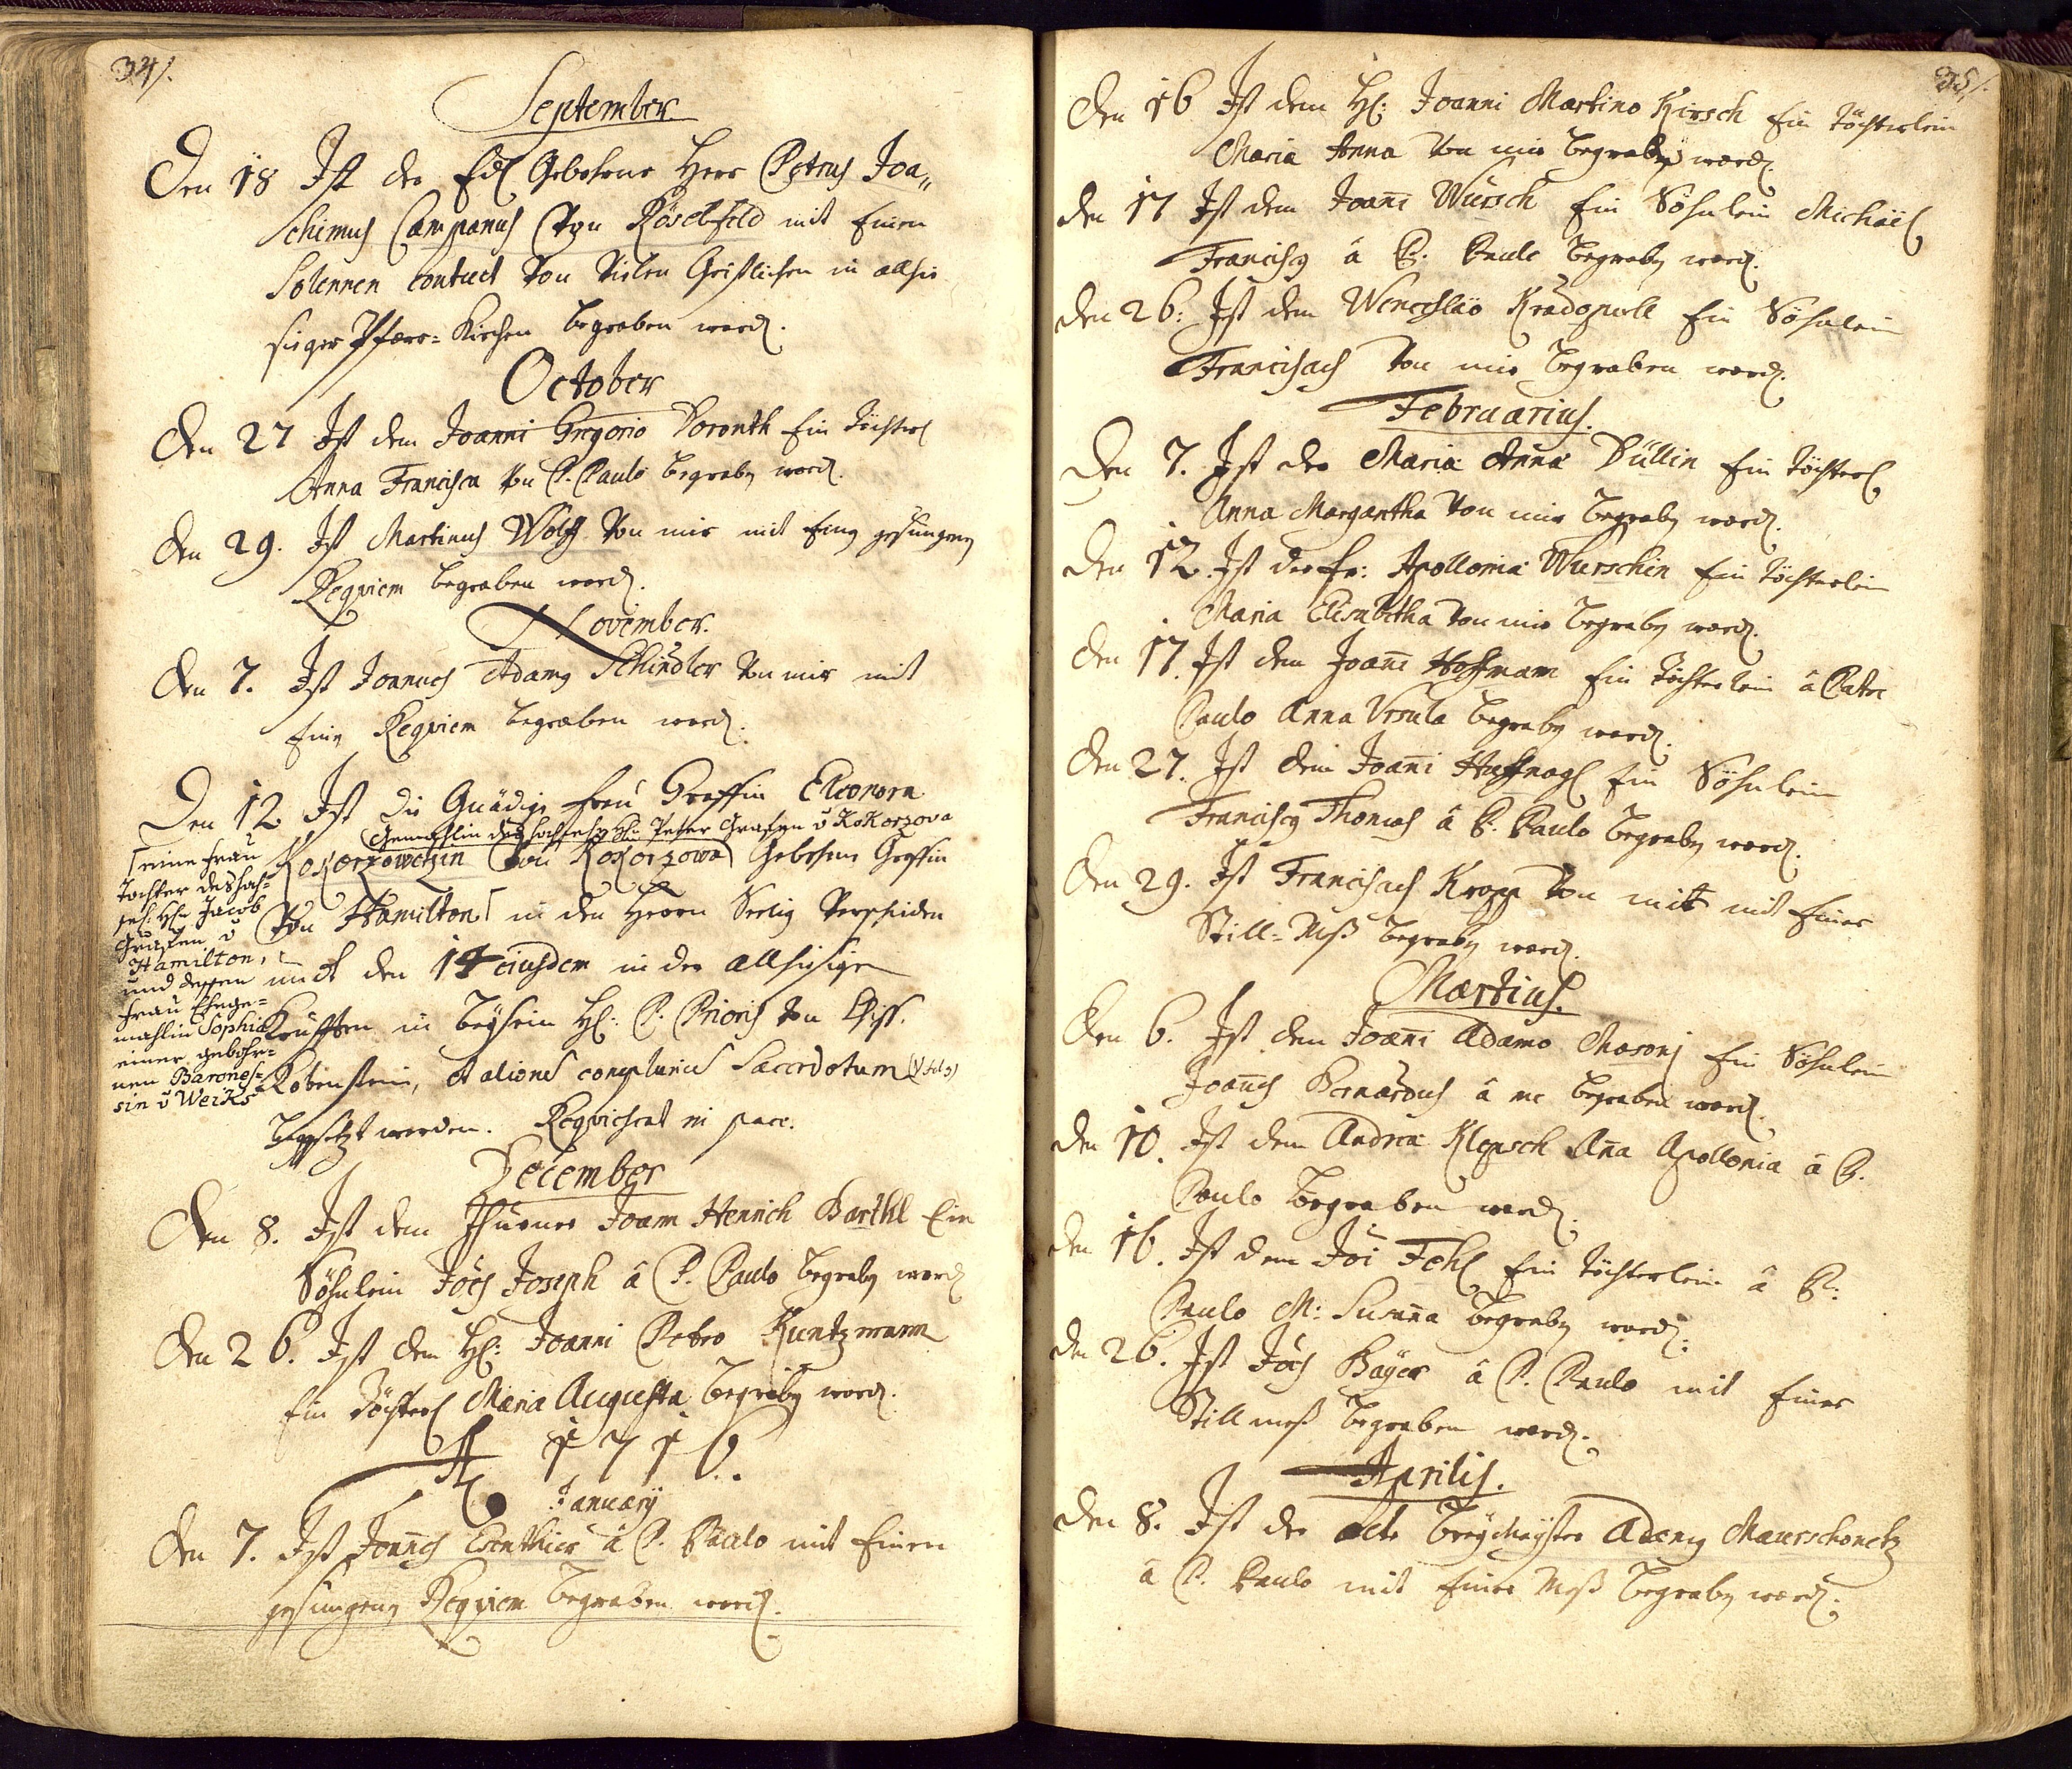 34/.
September
Den 18 Ist der Edl Gebohrne Herr Petrus Joa„
chimus Campanus Von Röselfeld mit Einen
Solennen Conduct Von Vielen Geistlichen in allhie
siger Pfarr=Kirchen begraben word.
October
Den 27 Ist dem Joanni Gregorio Doronth Ein Töchterl
Anna Francisca Von P. Paulo begraben word.
Den 29. Ist Martinus Wolff Von mir mit Einen gesungenen
Requiem begraben word.
November.
Den 7. Ist Joannes Adamus Schindler Von mir mit
Einen Requiem begraben word.
Den 12 Ist die Gnädige Frau Graffin Eleonora
Gemahlin des hochsel: H: Peter Grafen v Kokorzova
Kokorzowetzin Von Kokorzowa Gebohrne Graffin
Von Hamilton in den Herrn Seelig Verschiden
und den 14 eiusdem in der allhisigen
Krufften in beysein H: P: Prioris von Chiss.
Robenstein, et aliorum complurium Sacerdotum
beygesetzt worden. Requiescat in pace.
eine Frau
Tochter des hoch=
sel: H: Jacob
Grafen v
Hamilton,
und dessen
Frau Ehege=
mahlin Sophia
einer gebohr=
nen Barones=
sin v Weiks
December
Den 8. Ist dem Thurner Joann Henrich Barthl Ein
Söhnlein Joes Joseph â P. Paulo begraben word
Den 26. Ist dem H: Joanni Petro Kuntzmann
Ein Töchterl Maria Augusta begraben word.
A 1716.
January
Den 7. Ist Joannes Esenthier â P. Paulo mit Einen
gesungenen Requiem begraben word.
35/.
Den 16 Ist dem H: Joanni Martino Kirsch Ein Töchterlein
Maria Anna Von mir begraben word.
Den 17 Ist dem Joani Würsch Ein Söhnlein Michäel
Franciscus â P. Paulo begraben word.
Den 26: Ist dem Wenceslao Kradopoll Ein Söhnlein
Franciscus Von mir begraben word.
Februarius.
Den 7. Ist der Maria Anna Düllin Ein Töchterl
Anna Margaretha Von mir begraben word.
Den 12. Ist der Fr: Apollonia Wurschin Ein Töchterlein
Maria Elisabetha Von mir begraben word.
Den 17. Ist dem Joani Hoffmann Ein Töchterlein â Patre
Paulo Anna Ursula begraben word.
Den 27. Ist dem Joani Haffnagl Ein Söhnlein
Franciscus Thomas â P. Paulo begraben word.
Den 29. Ist Franciscus Kropp Von mir mit Einer
Still=Meß begraben word.
Martius.
Den 6. Ist dem Joani Adamo Masonj Ein Söhnlein
Joanes Bernardus â me begraben word.
Den 10. Ist dem Andrea Klepsch Ana Apollonia â P.
Paulo begraben word.
Den 16. Ist dem Joi Fehl Ein Töchterlein â P:
Paulo M: Susana begraben word.
Den 26. Ist Joes Bayer â P. Paulo mit Einer
Stillmeß begraben word.
Aprilis.
Den 8. Ist der alte Adamus Maurschonetz
â P. Paulo mit Einer Meß begraben word.